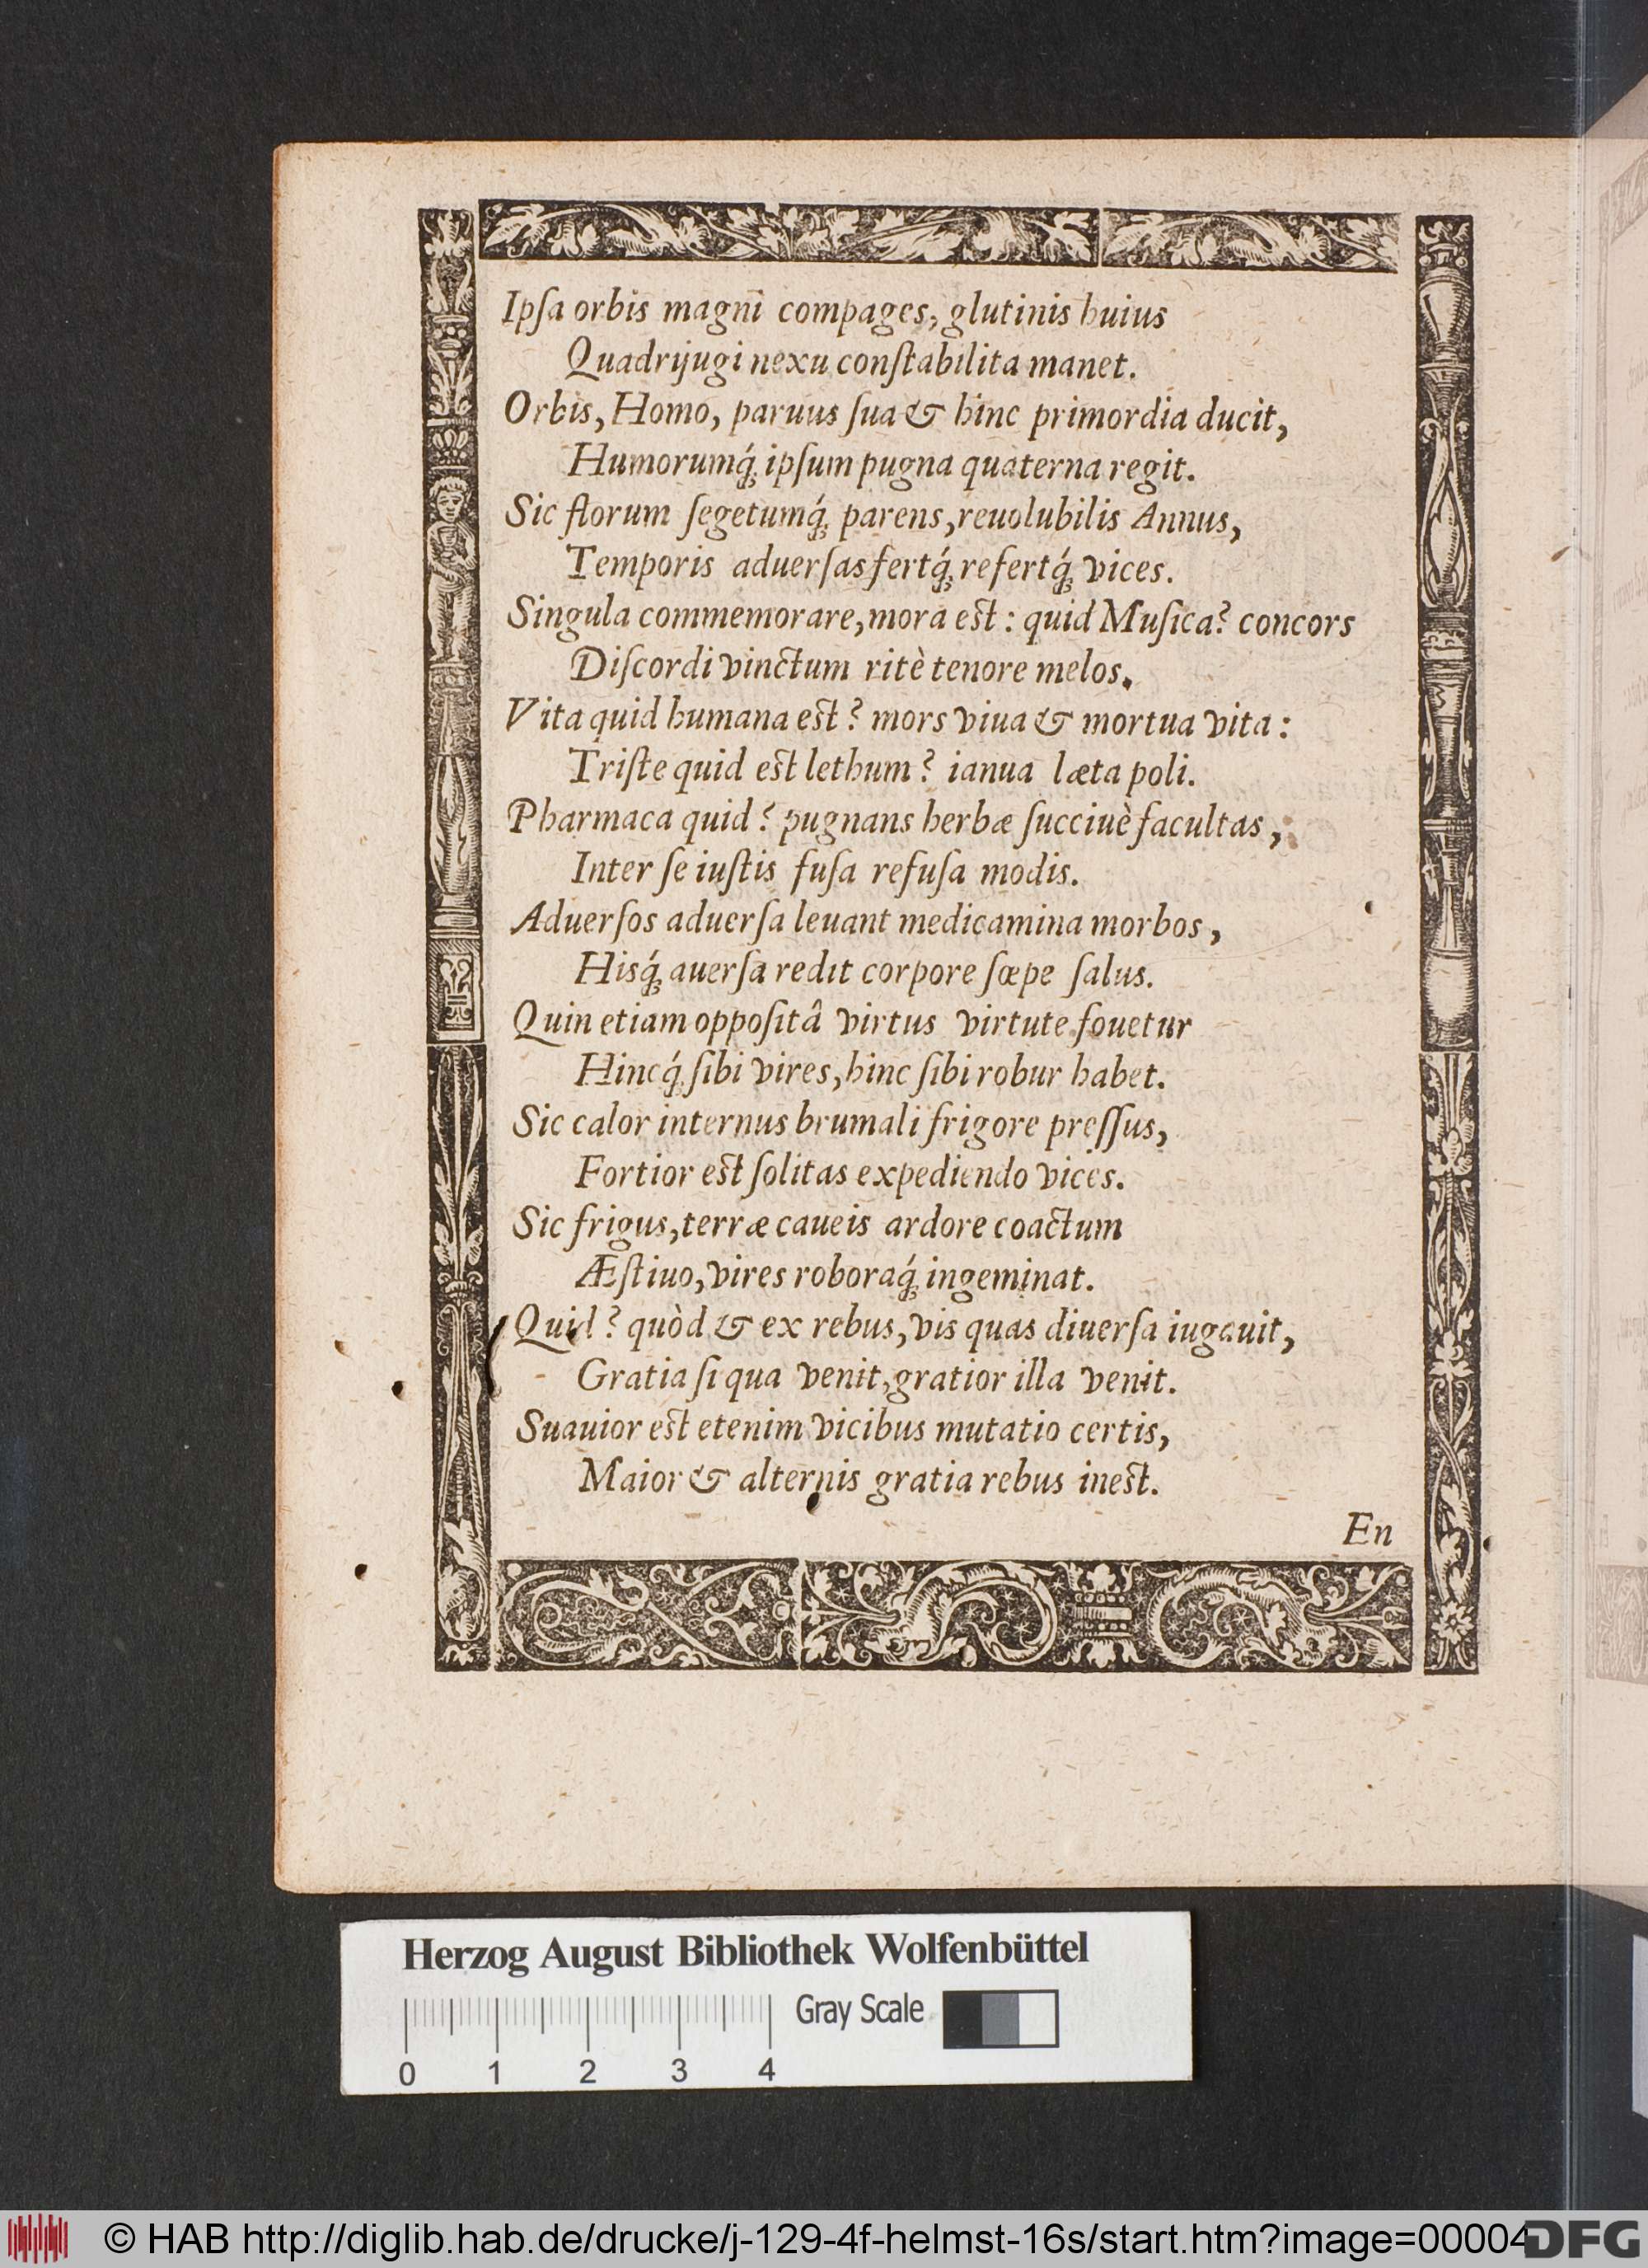 Ipſa orbis magni compages, glutinis huius
Quadrijugi nexu conſtabilita manet.
Orbis, Homo, paruus ſua & hinc primordia ducit,
Humorumq́; ipſum pugna quaterna regit.
Sic florum ſegetumq́; parens, reuolubilis Annus,
Temporis aduerſas fertq́; refertq́; vices.
Singula commemorare, mora est: quid Muſica? concors
Diſcordi vinctum ritè tenore melos.
Vita quid humana est? mors viua & mortua vita:
Triſte quid est lethum? ianua læta poli.
Pharmaca quid? pugnans herbæ ſucciuè facultas,
Inter ſe iuſtis fuſa refuſa modis.
Aduerſos aduerſa leuant medicamina morbos,
Hisq́; auerſa redit corpore ſœpe ſalus.
Quin etiam oppoſitâ virtus virtute fouetur
Hincq́; ſibi vires, hinc ſibi robur habet.
Sic calor internus brumali frigore preſſus,
Fortior est ſolitas expediendo vices.
Sic frigus, terræ caueis ardore coactum
Æſtiuo, vires roboraq́; ingeminat.
Quid? quòd & ex rebus, vis quas diuerſa iugauit,
Gratia ſi qua venit, gratior illa venit.
Suauior est etenim vicibus mutatio certis,
Maior & alternis gratia rebus inest.
En
Herzog August Bibliothek Wolfenbüttel
Gray Scale
0 1 2 3 4
© HAB http://diglib.hab.de/drucke/j-129-4f-helmst-16s/start.htm?image=00004
DFG